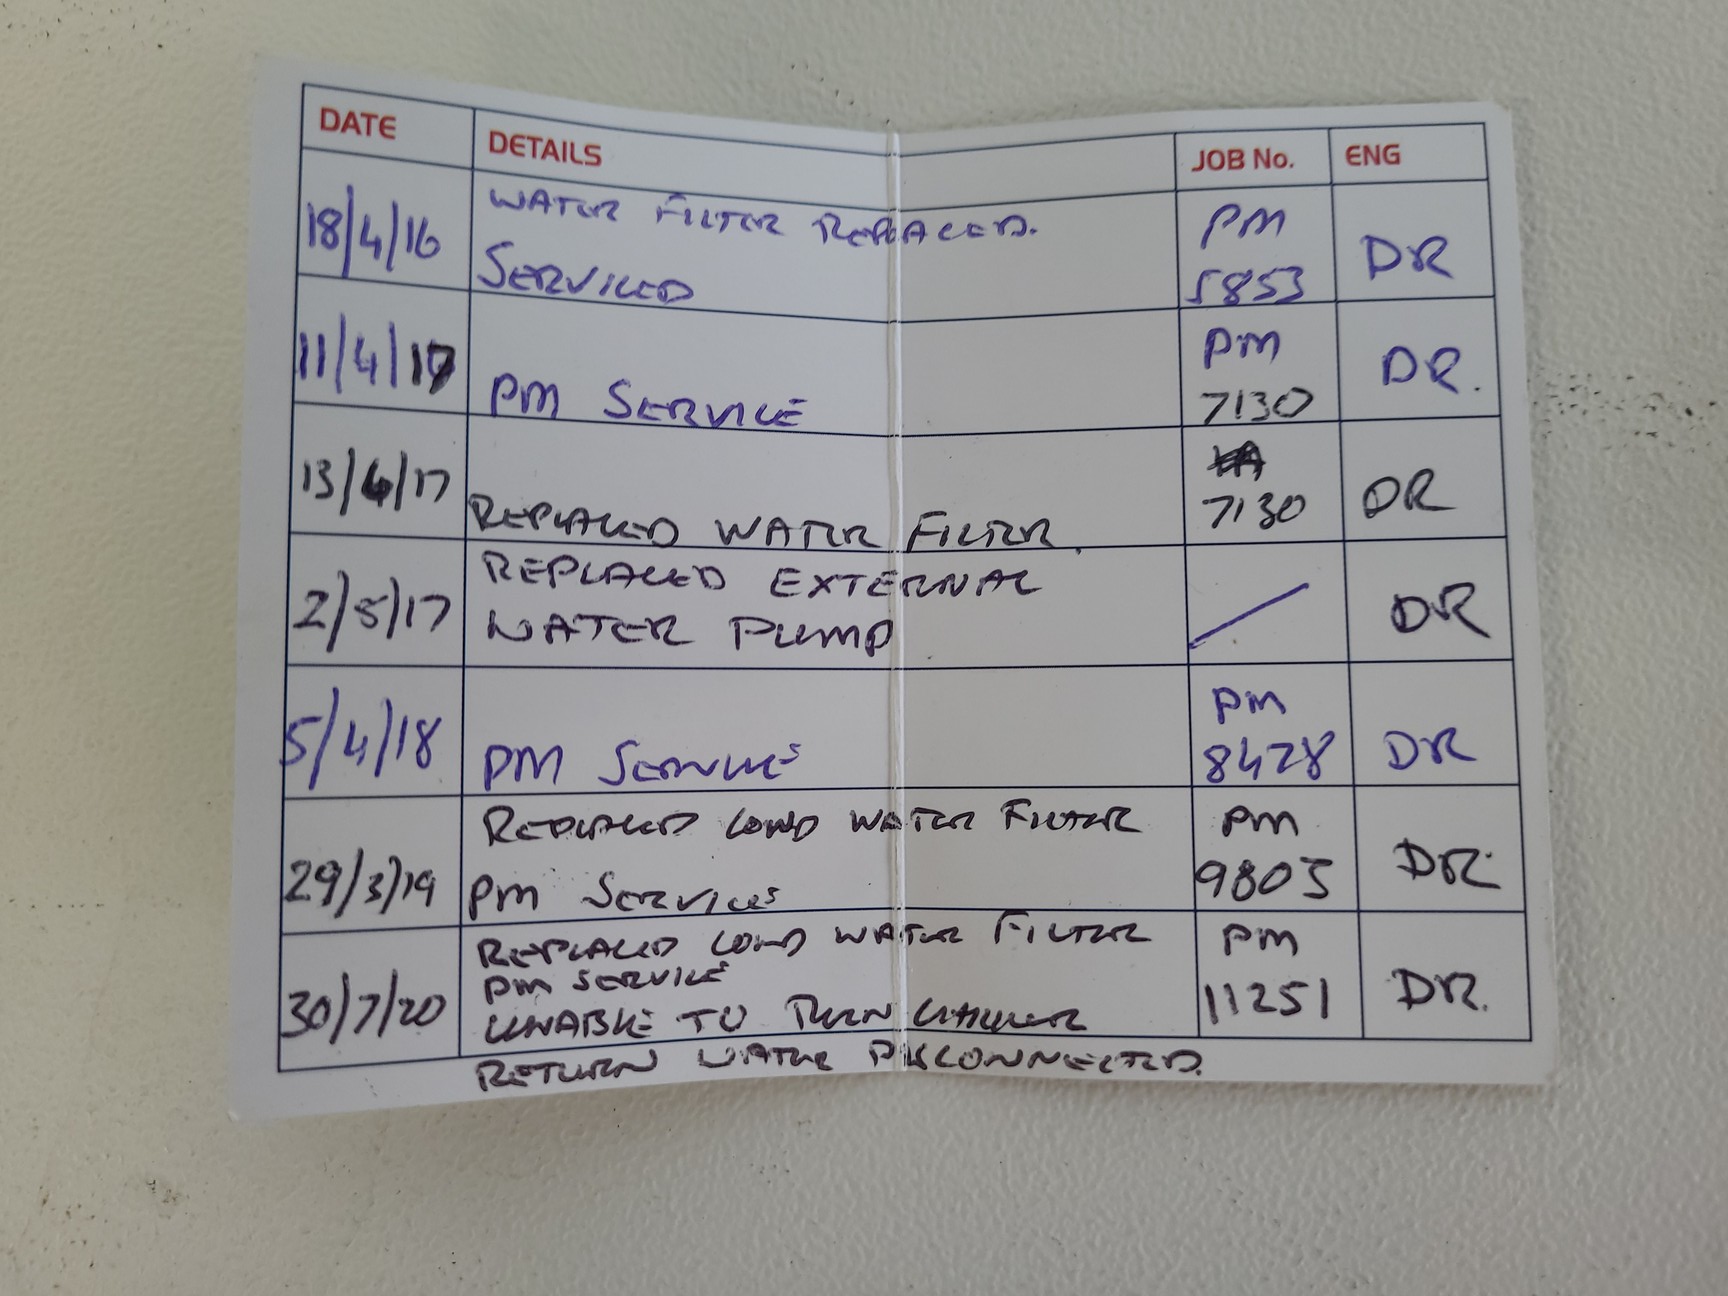 DATE DETAILS JOB No. ENG
18/4/16 WATER FILTER REPLACED. PM DR
SERVICED 5853
11/4/17 PM SERVICE PM DR.
7130
13/4/17 REPLACED WATER FILTER. 7130 DR
2/5/17 REPLACED EXTERNAL / DR
WATER PUMP
5/4/18 PM SERVICE PM DR
8428
29/3/19 REPLACED LOWD WATER FILTER PM DR.
PM SERVICE 9805
30/7/20 REPLACED LOWD WATER FILTER PM DR.
PM SERVICE 11251
UNABLE TO TURN CHILLER
RETURN WATER DISCONNECTED.